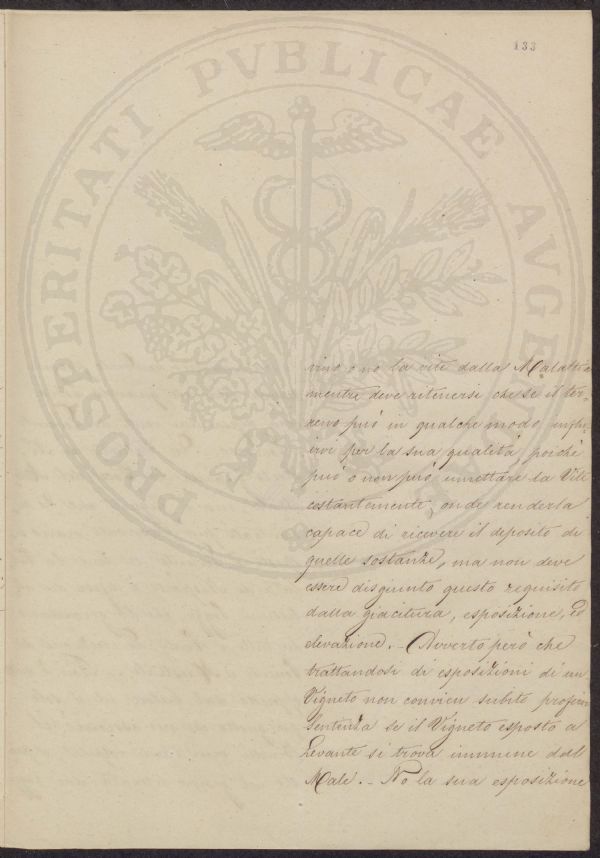 133
PROSPERITATI PVBLICAE AVGENDAE
vino o no la vite dalla Malattia
mentre deve ritenersi che se il ter-
reno può in qualche modo influ-
irvi per la sua qualità, poichè
può o non può umettare la Vite
costantemente, onde renderla
capace di ricevere il deposito di
quelle sostanze, ma non deve
essere disgiunto questo requisito
dalla giacitura, esposizione, ed
elevazione. - Avverto però che
trattandosi di esposizioni di un
Vigneto non convien subito proferir
Sentenza se il Vigneto esposto a
Levante si trova immune dal
Male. - No la sua esposizione